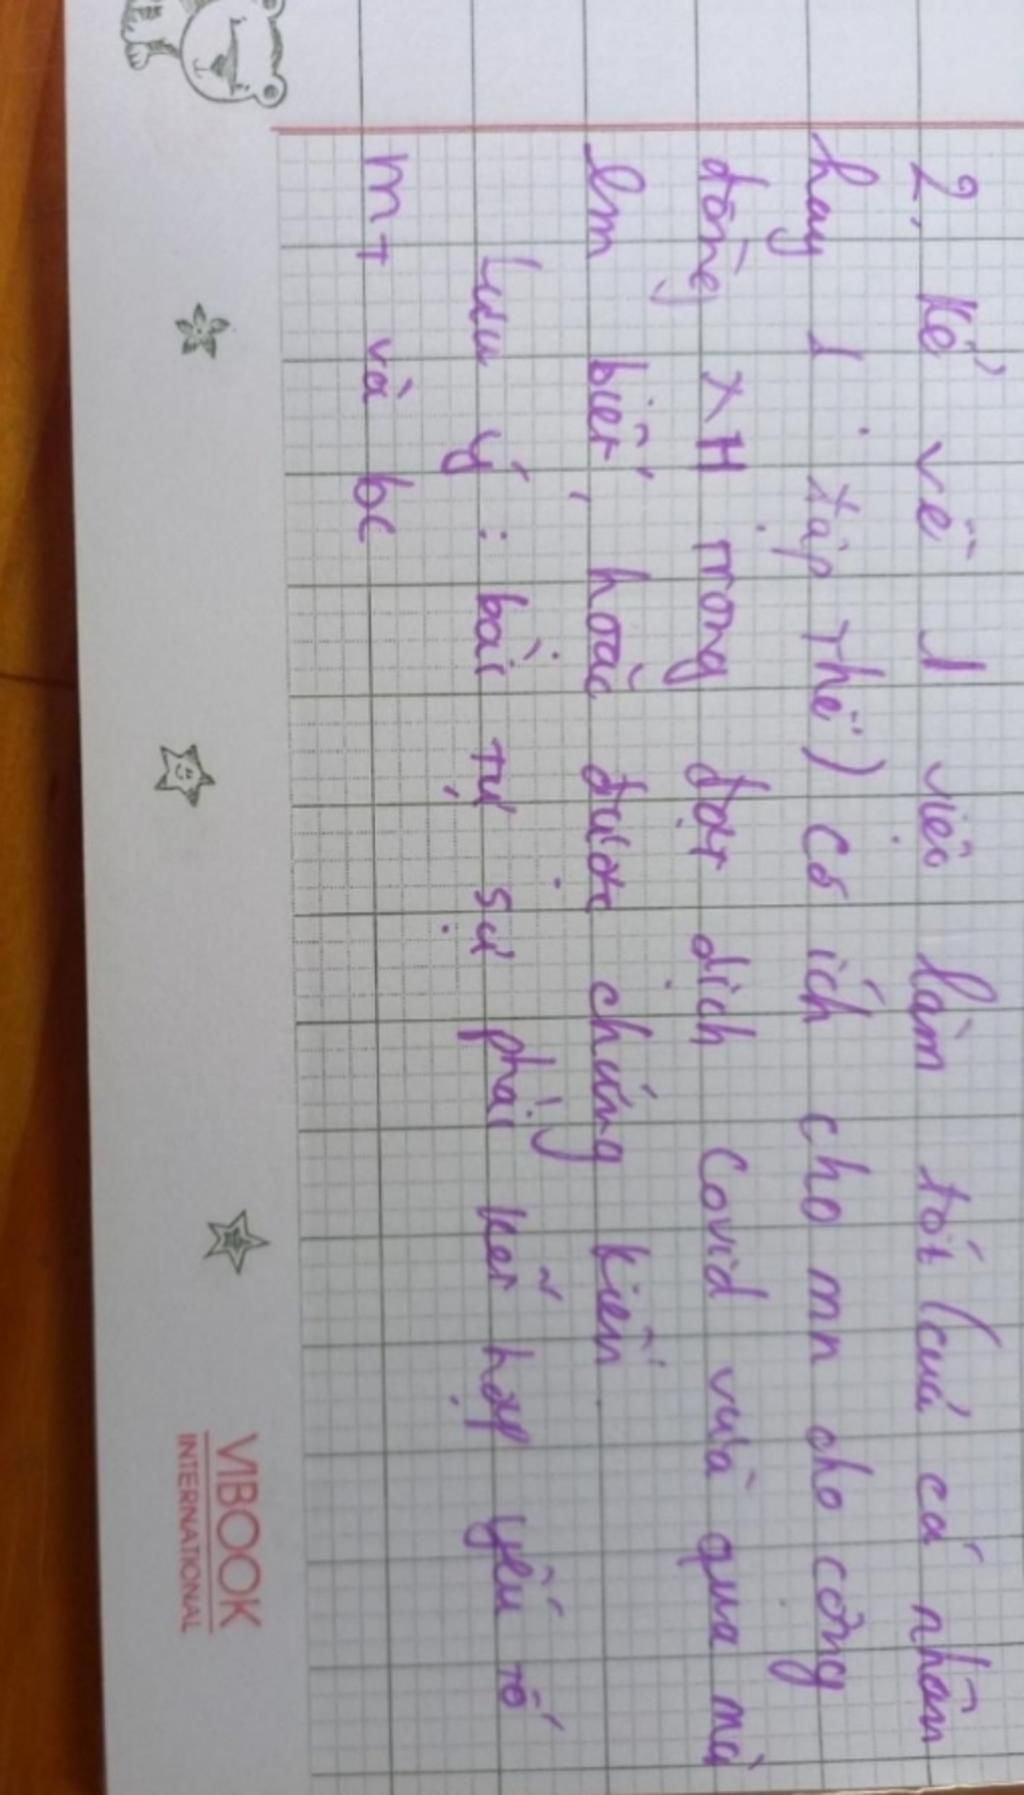 2. Kể về 1 việc làm tốt (của cá nhân
hay 1 tập thể) có ích cho mn cho cộng
đồng XH trong đợt dịch Covid vừa qua mà
Em biết, hoặc được chứng kiến.
Lưu ý: bài tự sự phải kết hợp yếu tố
MT và bc
VIBOOK
INTERNATIONAL